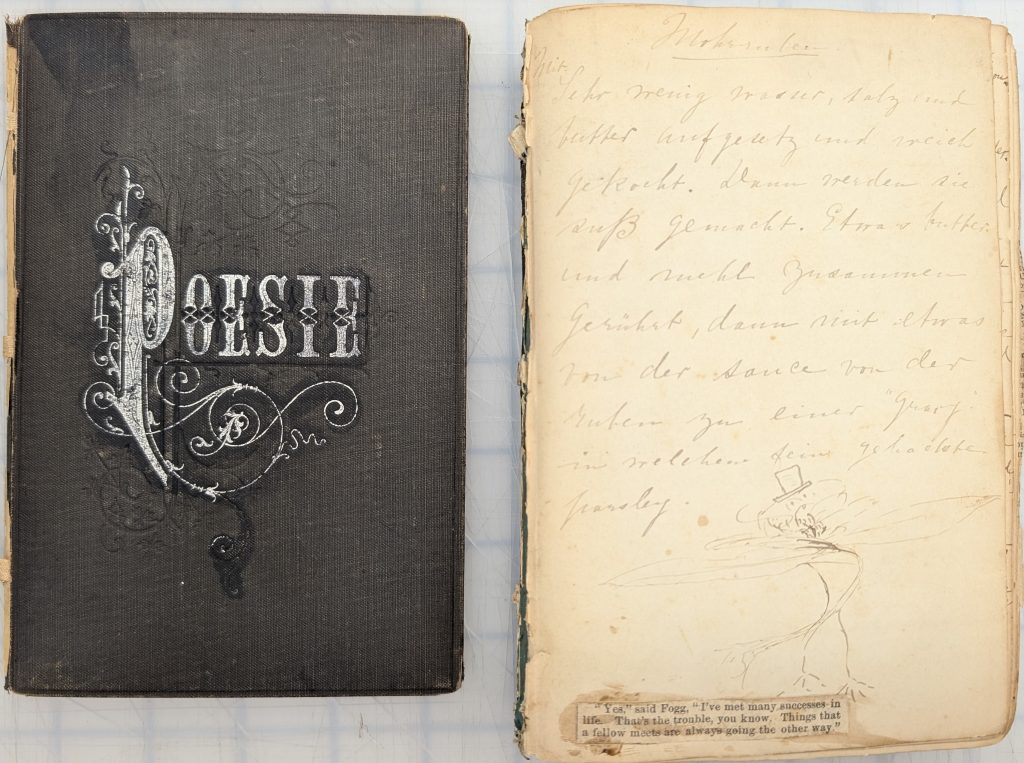 POESIE
Mohrruben
Mit
Sehr wenig wasser, salz und
butter aufgesetz und weich
gekocht. Dann werden sie
süß gemacht. Etwas butter
und mehl zusammen
Gerührt, dann mit etwas
von der sauce von der
ruben zu einer "Gravy"
in welchem fein gehackte
parsley.
"Yes," said Fogg, "I've met many successes in
life. That's the trouble, you know. Things that
a fellow meets are always going the other way."